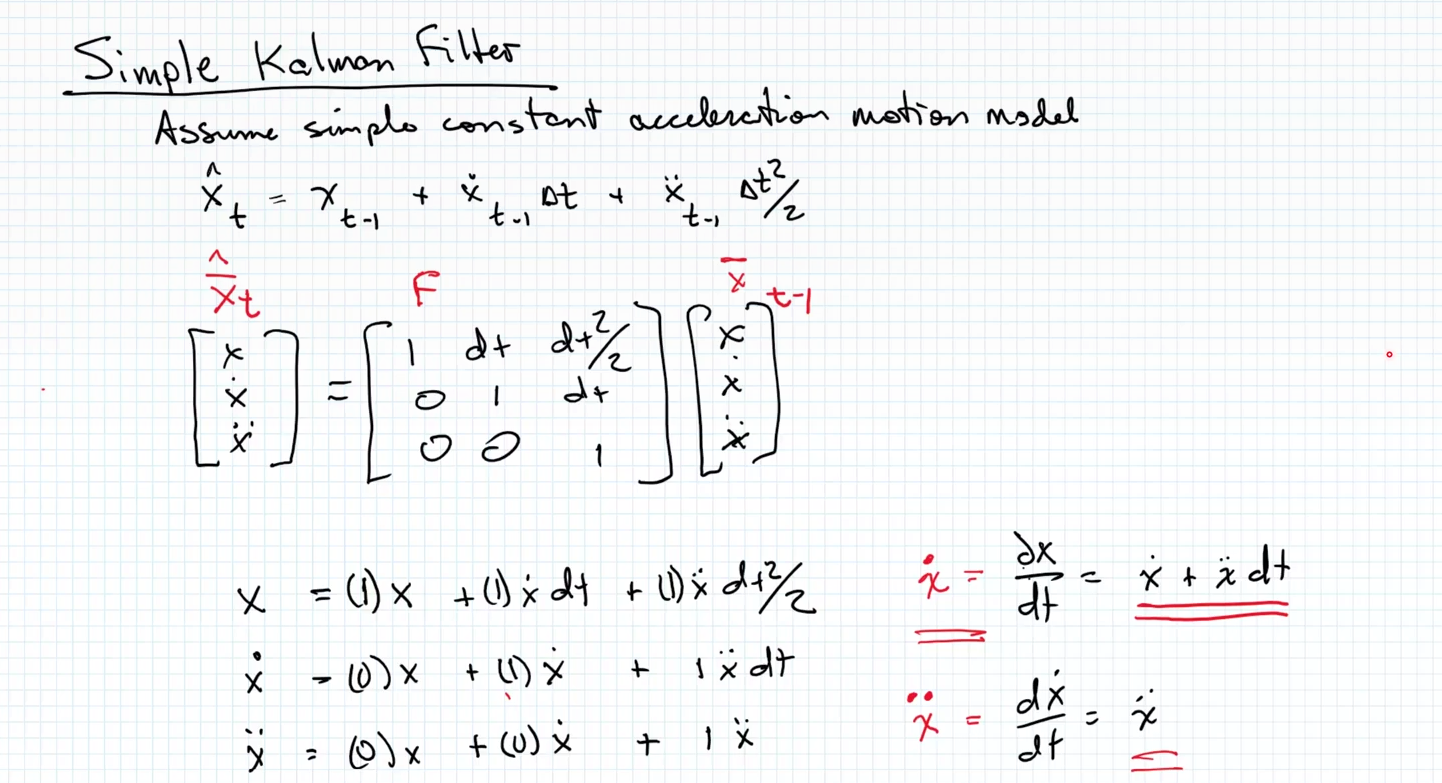 Simple Kalman Filter
Assume simple constant acceleration motion model
x̂ₜ = xₜ₋₁ + ẋₜ₋₁ Δt + ẍₜ₋₁ Δt²/2
x̄̂ₜ F x̄ₜ₋₁
[x ẋ ẍ] = [1 dt dt²/2; 0 1 dt; 0 0 1] [x ẋ ẍ]
x = (1)x + (1)ẋ dt + (1)ẍ dt²/2
ẋ = (0)x + (1)ẋ + 1 ẍ dt
ẍ = (0)x + (0)ẋ + 1 ẍ
ẋ = ∂x/dt = ẋ + ẍ dt
ẍ = dẋ/dt = ẍ